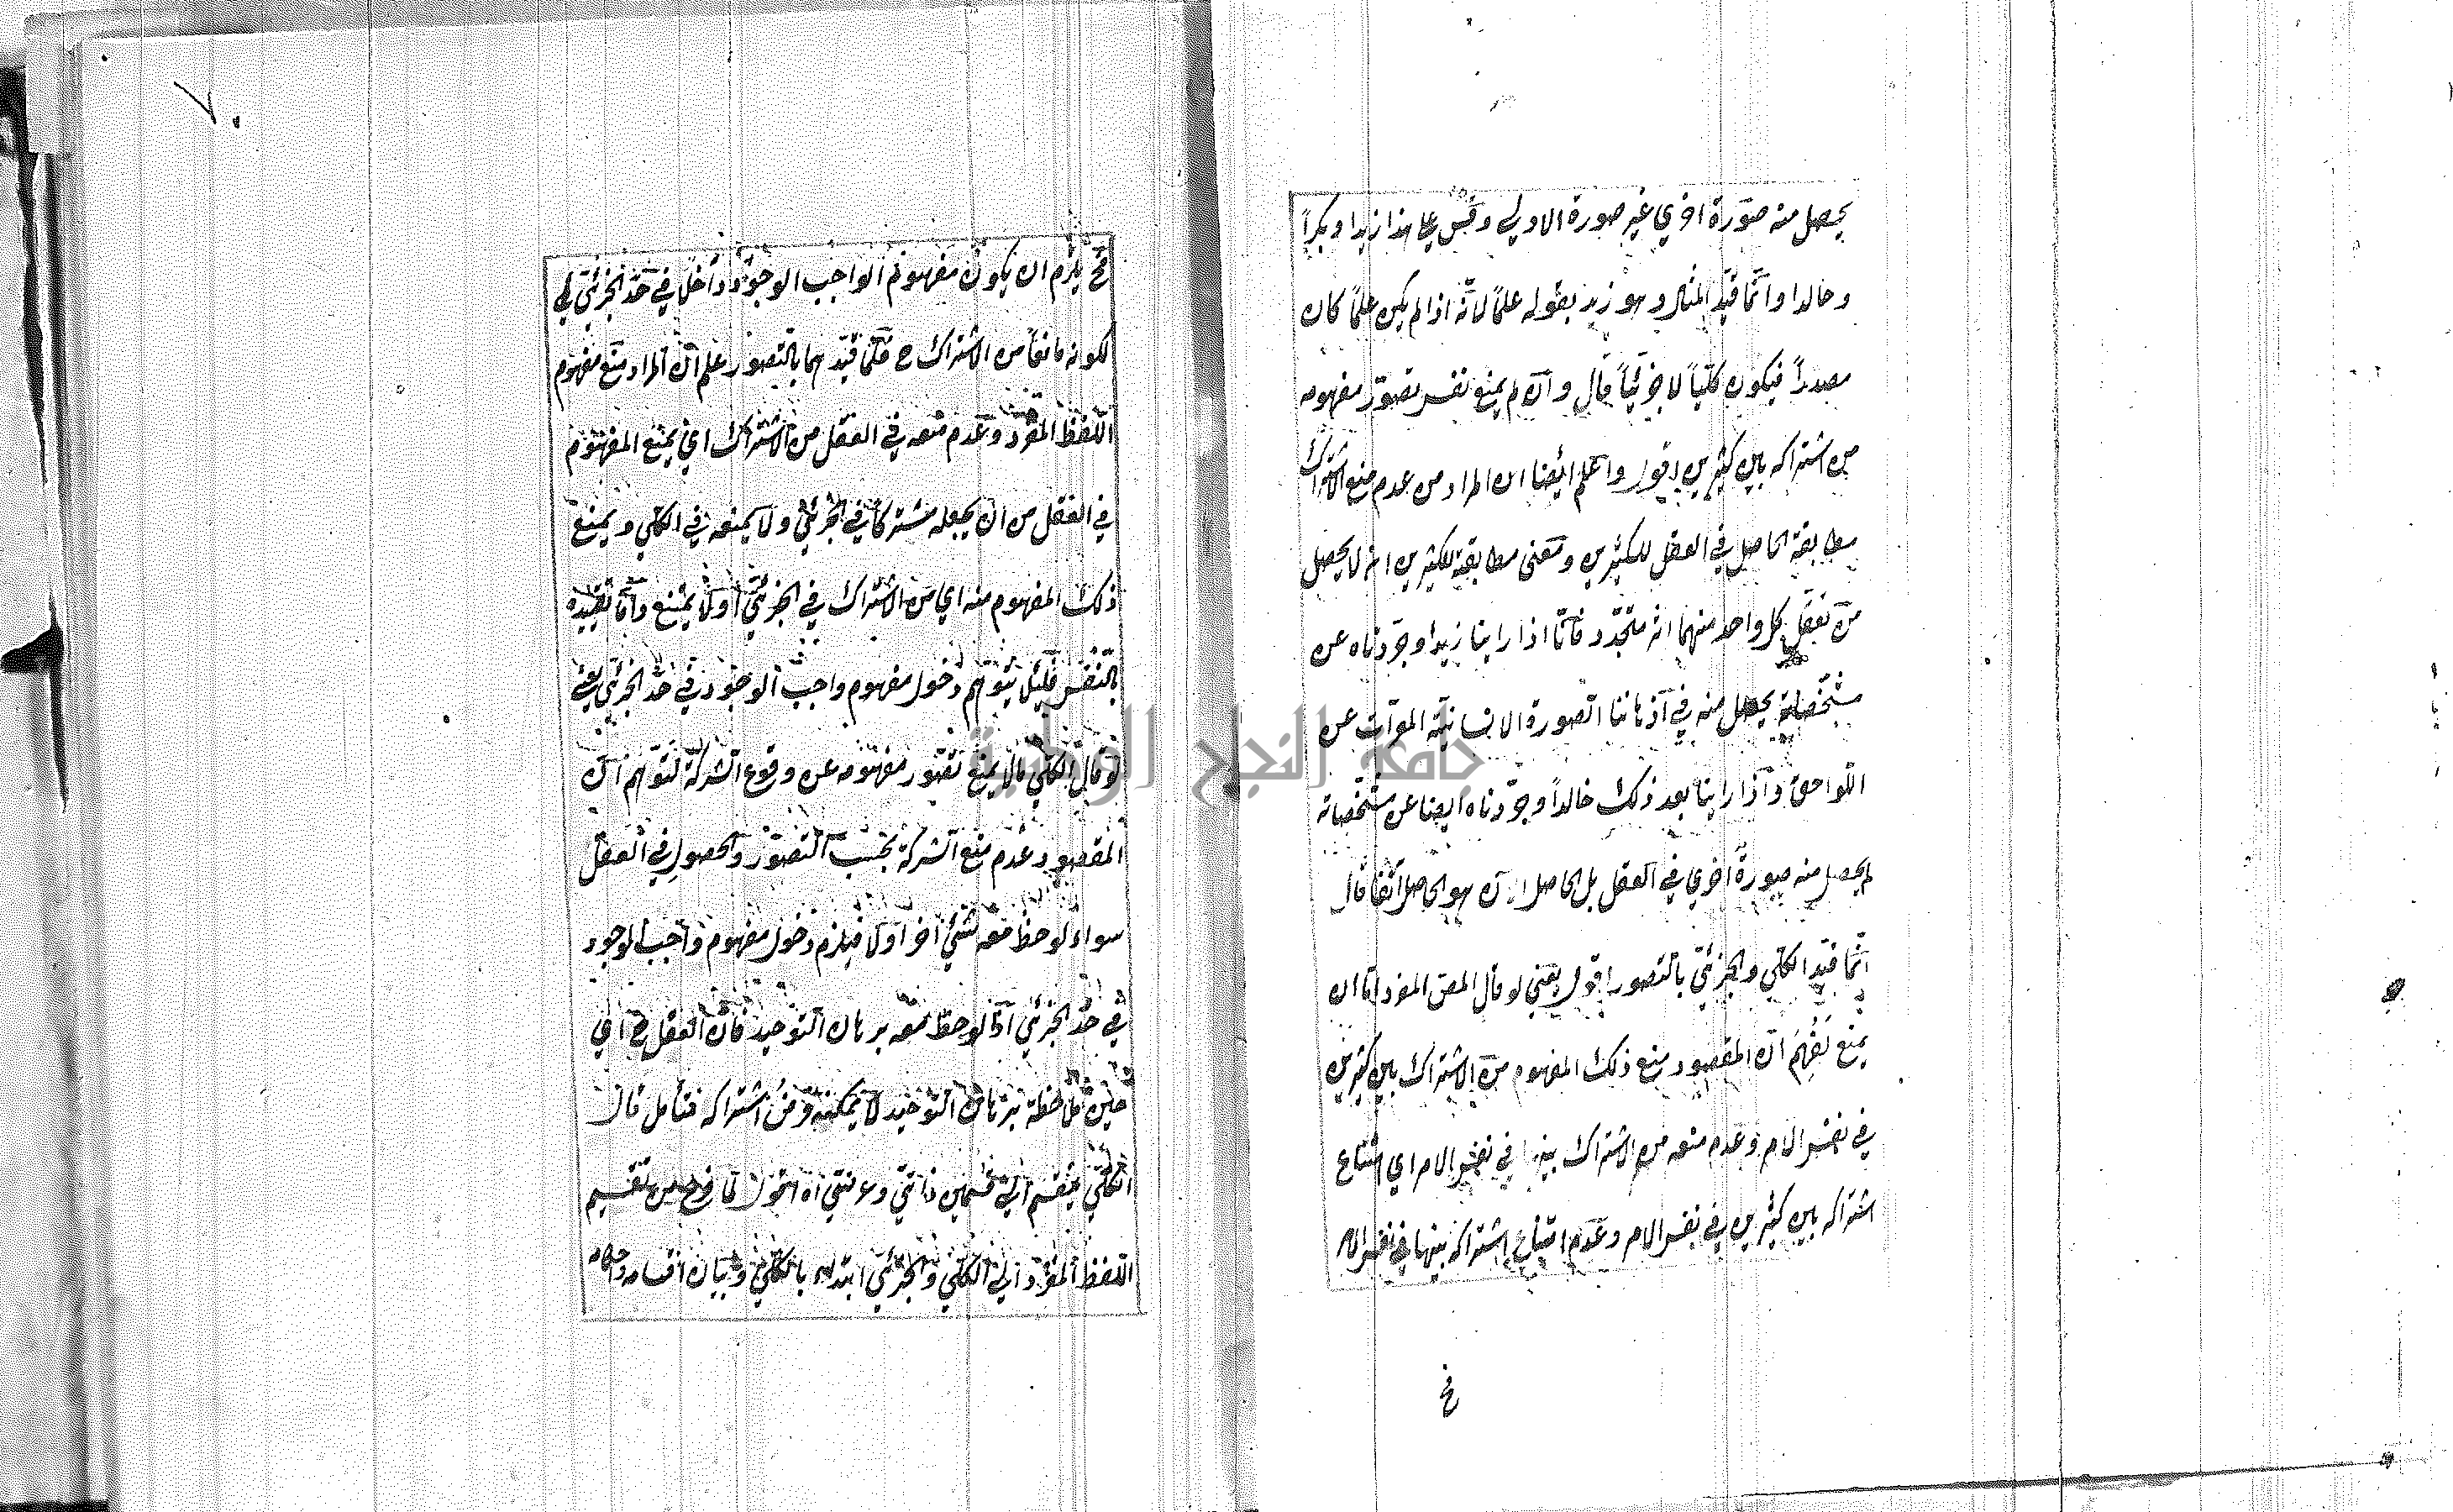 يحصل منه صورة اخري غير صورة الاولي وقس علي هذا زيدا وبكراً
وخالدا وانّما قيّد المثال وهو زيد بقوله علماً لانّه اذا لم يكن علماً كان
مصدراً فيكون كليّاً لا جزئيّاً قال وان لم يمنع نفس تصوّر مفهومه
من اشتراكه بين كثيرين اقول واعلم ايضا ان المراد من عدم منع الاشتراك
مطابقة الحاصل في العقل للكثيرين ومعنى مطابقة للكثيرين انه لا يحصل
من تعقل كل واحد منهما اثر متجدّد فانّا اذا راينا زيدا وجرّدناه عن
مشخّصاته يحصل منه في اذهاننا الصورة الانسانيّة المعرّات عن
اللواحق واذا راينا بعد ذلك خالداً وجرّدناه ايضا عن مشخّصاته
لم يحصل منه صورة اخري في العقل بل الحاصل الآن هو الحاصل آنفا قال
انّما قيّد الكلّي والجزئيّ بالتصور اقول يعني لو قال المص المفرد امّا ان
يمنع لفُهِمَ انّ المقصود منع ذلك المفهوم من الاشتراك بين كثيرين
في نفس الامر وعدم منعه من الاشتراك بينها في نفس الامر اي امتناع
اشتراكه بين كثيرين في نفس الامر وعدم امتناع اشتراكه بينها في نفس الامر
فح
٧
فح يلزم ان يكون مفهوم الواجب الوجود داخل في حدّ الجزئيّ
لكونه مانعاً من الاشتراك ح فلمّا قيّدهما بالتصور علم انّ المراد منع مفهوم
اللفظ المفرد وعدم منعه في العقل من الاشتراك اي يمنع المفهوم
في العقل من ان يجعله مشتركاً في الجزئيّ ولا يمنعه في الكلي ويمنع
ذلك المفهوم منه اي من الاشتراك في الجزئيّ اولا يمنع وامّا تقييده
بالنفس فلئلا يتوهّم دخول مفهوم واجب الوجود في حدّ الجزئي يعني
لو قال الكلّي مالا يمنع تصور مفهومه عن وقوع الشركة لتوهّم انّ
المقصود عدم منع الشركة بحسب التصوّر والحصول في العقل
سواء لوحظ معه شئ اخر اولا فيلزم دخول مفهوم واجب الوجود
في حدّ الجزئي اذا لوحظ معه برهان التوحيد فانّ العقل ح اي
حين ملاحظة برهان التوحيد لا يمكنه فرض اشتراكه فتأمل قال
الكلّي ينقسم الي قسمين ذاتيّ وعرضيّ اه اقول لما فرغ من تقسيم
اللفظ المفرد الي الكلّي والجزئيّ ابتداء بالكلّي وبيان اقسامه
جامعة النجاح الوطنية